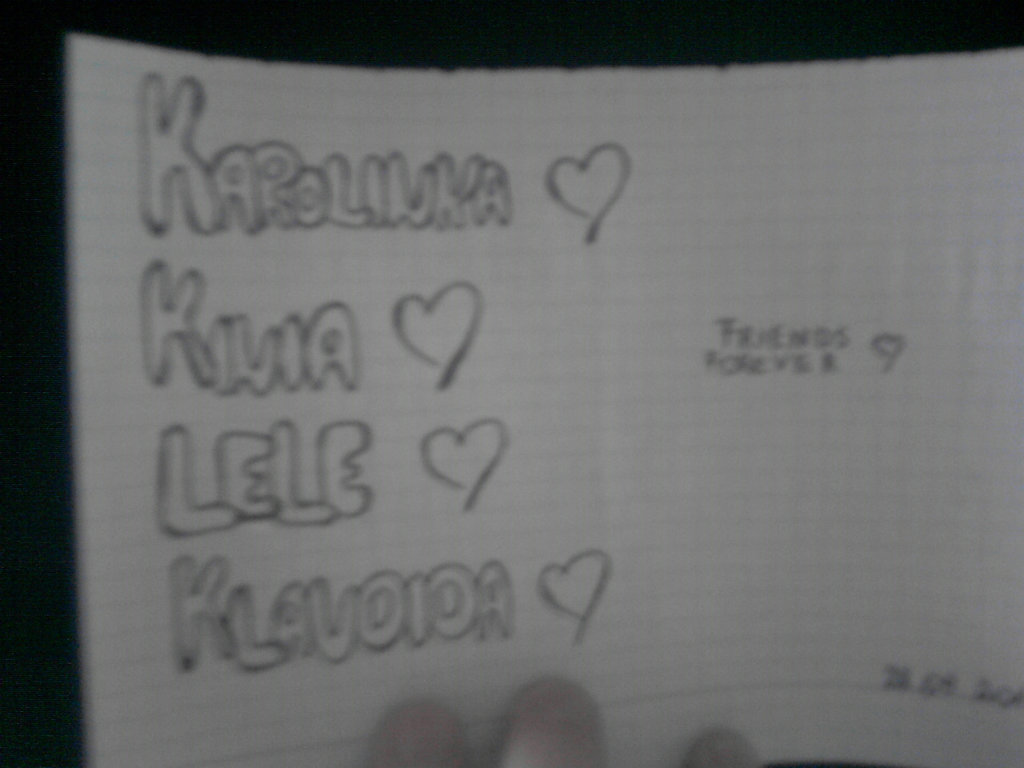 KAROLINKA ♡
KIVIA ♡
LELE ♡
KLAUDIDA ♡
FRIENDS
FOREVER ♡